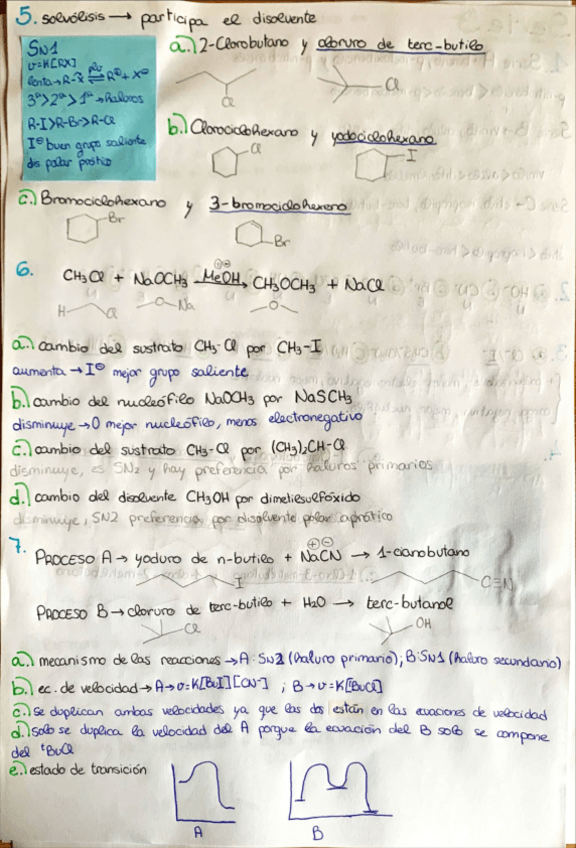 5. solvólisis → participa el disolvente
SN1
v=K[RX]
lenta→R-X ⇌ R⊕+X⊖
3ª>2ª>1ª→haluros
R-I>R-Br>R-Cl
I⊖ buen grupo saliente
dis polar prótico
a.) 2-Clorobutano y cloruro de terc-butilo
Cl
Cl
b.) Clorociclohexano y yodociclohexano
Cl
I
c.) Bromociclohexano y 3-bromociclohexeno
Br
Br
6.
CH3Cl + NaOCH3 MeOH→ CH3OCH3 + NaCl
a.) cambio del sustrato CH3-Cl por CH3-I
aumenta → I⊖ mejor grupo saliente
b.) cambio del nucleófilo NaOCH3 por NaSCH3
disminuye → O mejor nucleófilo, menos electronegativo
c.) cambio del sustrato CH3-Cl por (CH3)2CH-Cl
disminuye, es SN2 y hay preferencia por haluros primarios
d.) cambio del disolvente CH3OH por dimetilsulfóxido
disminuye, SN2 preferencia por disolvente polar aprótico
7.
PROCESO A → yoduro de n-butilo + NaCN → 1-cianobutano
I
C≡N
PROCESO B → cloruro de terc-butilo + H2O → terc-butanol
Cl
OH
a.) mecanismo de las reacciones → A: SN2 (haluro primario); B: SN1 (haluro secundario)
b.) ec. de velocidad → A → v=K[BuI][CN-] ; B → v=K[tBuCl]
c.) se duplican ambas velocidades ya que las dos están en las ecuaciones de velocidad
d.) solo se duplica la velocidad del A porque la ecuación del B solo se compone
del tBuCl
e.) estado de transición
A
B